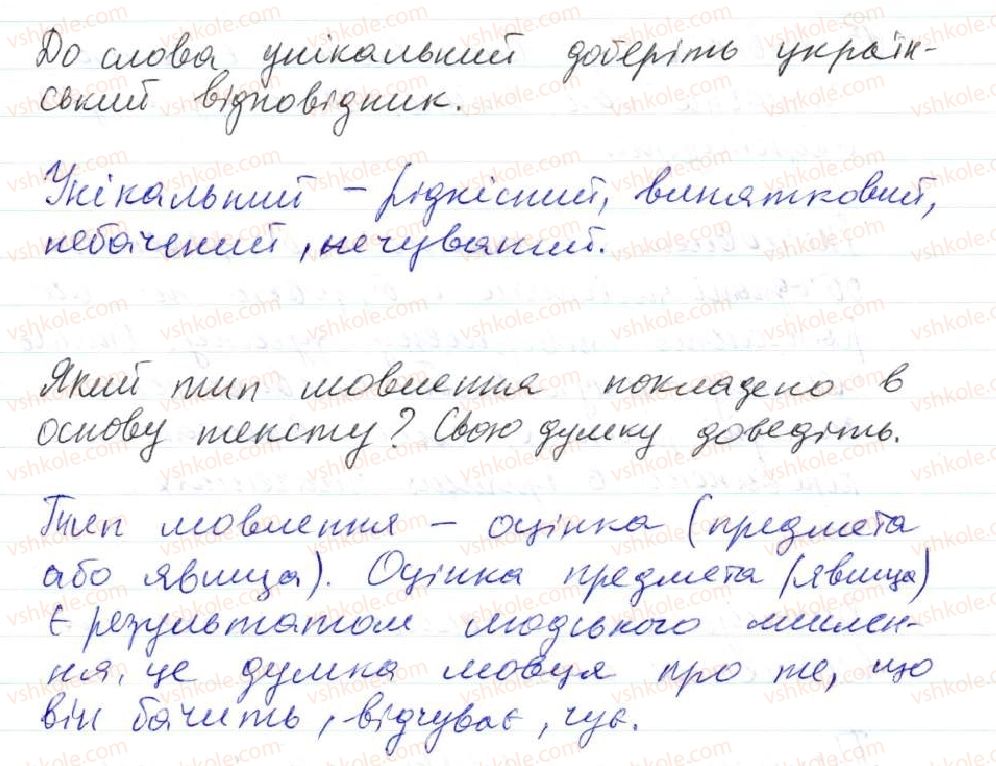 До слова унікальний доберіть україн-
ський відповідник.
Унікальний – рідкісний, винятковий,
небачений, нечуваний.
Який тип мовлення покладено в
основу тексту? Свою думку доведіть.
Тип мовлення – оцінка (предмета
або явища). Оцінка предмета (явища)
є результатом людського мислен-
ня, це думка мовця про те, що
він бачить, відчуває, чує.